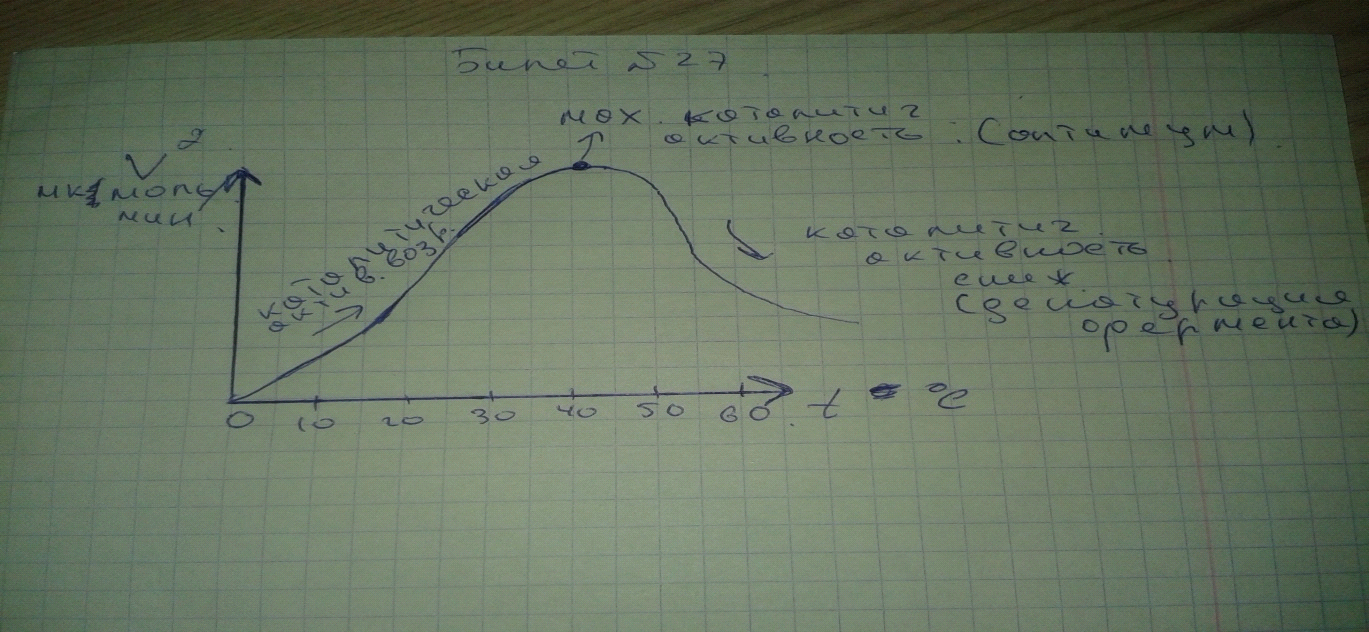 Билет №27
max. каталитич
активность. (оптимум)
V
мкмоль/
мин.
каталитическая
актив. возр.
каталитич.
активность
сниж
(денатурация
фермента)
0 10 20 30 40 50 60. t °C